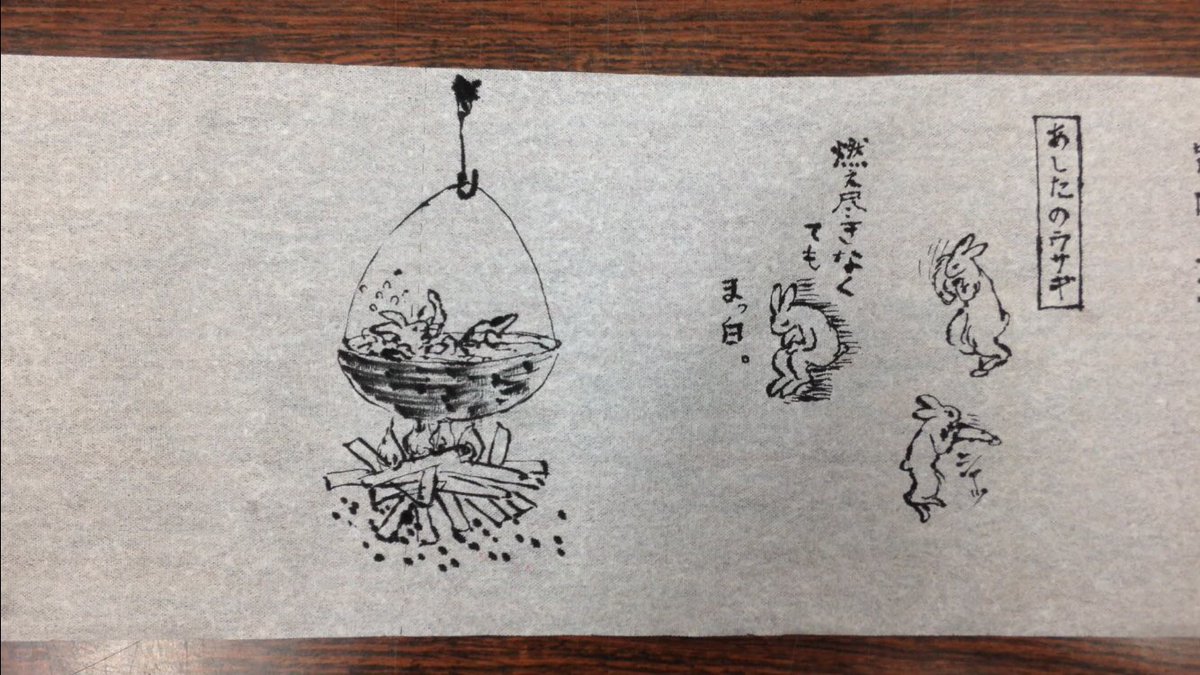 あしたのウサギ
燃え尽きなく
ても
まっ白。